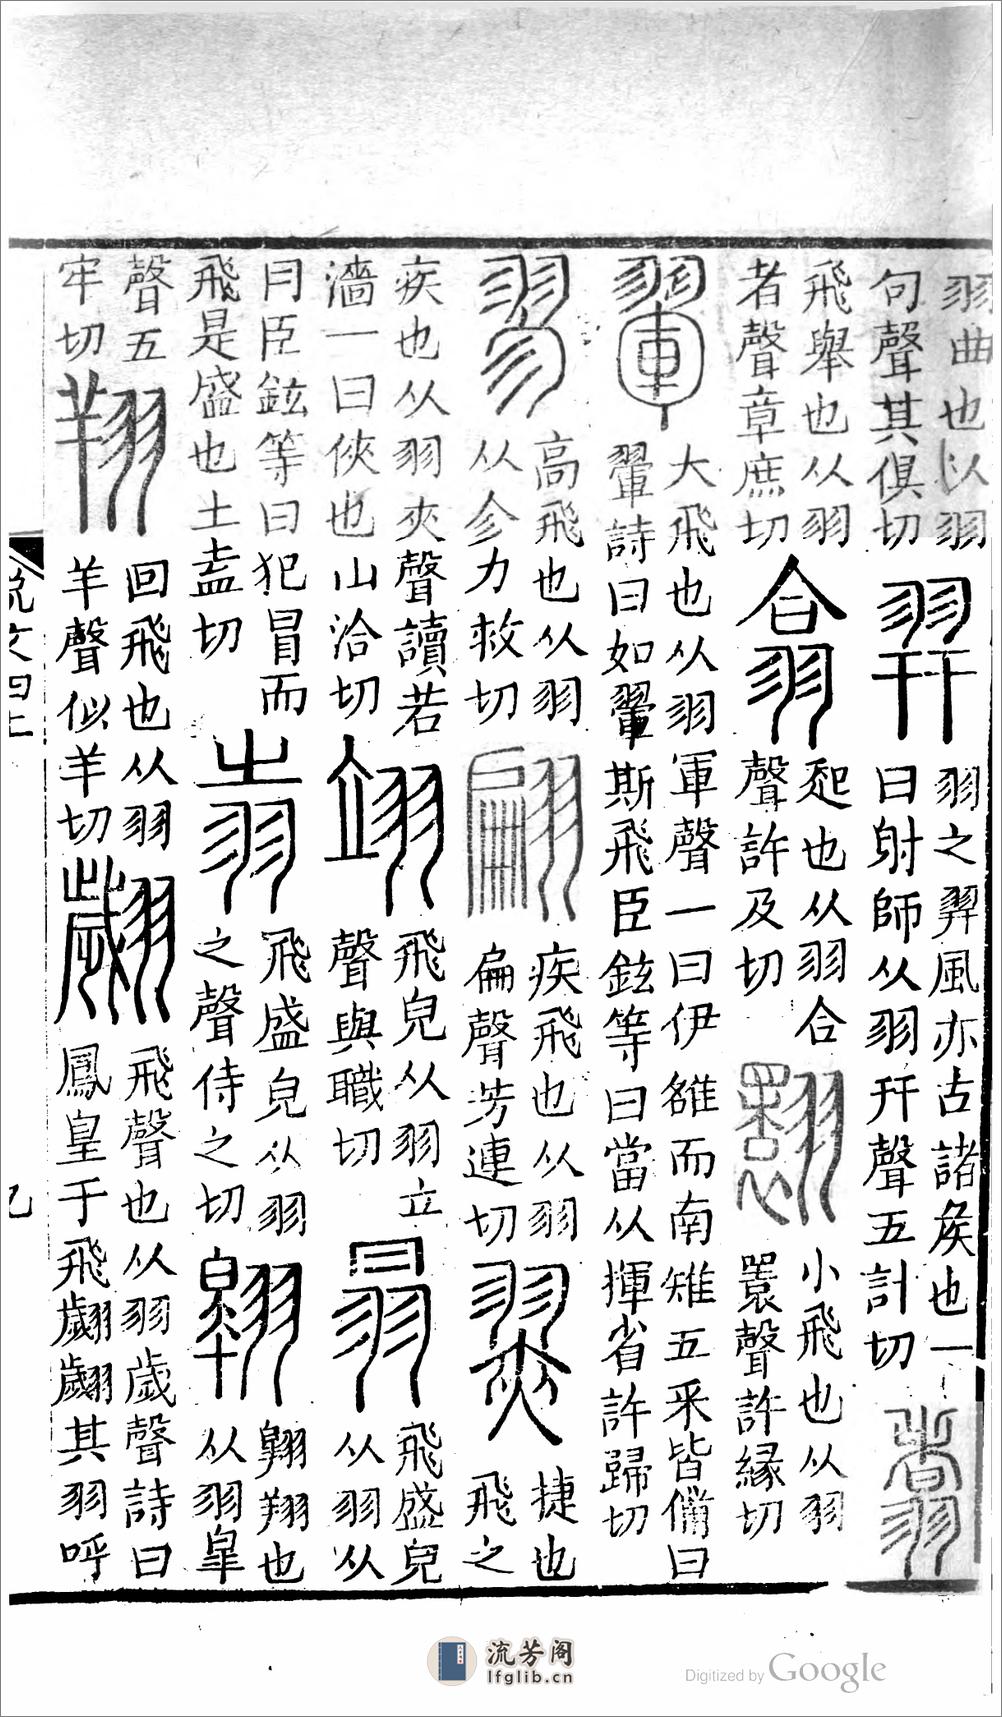 羽曲也以羽
句聲其俱切
羿
羽之羿風亦古諸矦也一
曰䠶師从羽幵聲五計切
翥
飛舉也从羽
者聲章庶切
翕
起也从羽合
聲許及切
翾
小飛也从羽
睘聲許緣切
翬
大飛也从羽軍聲一曰伊雒而南雉五采皆備曰
翬詩曰如翬斯飛臣鉉等曰當从揮省許歸切
翏
高飛也从羽
从㐱力救切
翩
疾飛也从羽
扁聲芳連切
翜
捷也
飛之
疾也从羽夾聲讀若
濇一曰俠也山洽切
翊
飛皃从羽立
聲與職切
𦐇
飛盛皃
从羽从
冃臣鉉等曰犯冒而
飛是盛也土盍切
翄
飛盛皃从羽
之聲侍之切
翱
翱翔也
从羽皐
聲五
牢切
翔
回飛也从羽
羊聲似羊切
翽
飛聲也从羽歲聲詩曰
鳳皇于飛翽翽其羽呼
說文四上
流芳阁
lfglib.cn
Digitized by Google